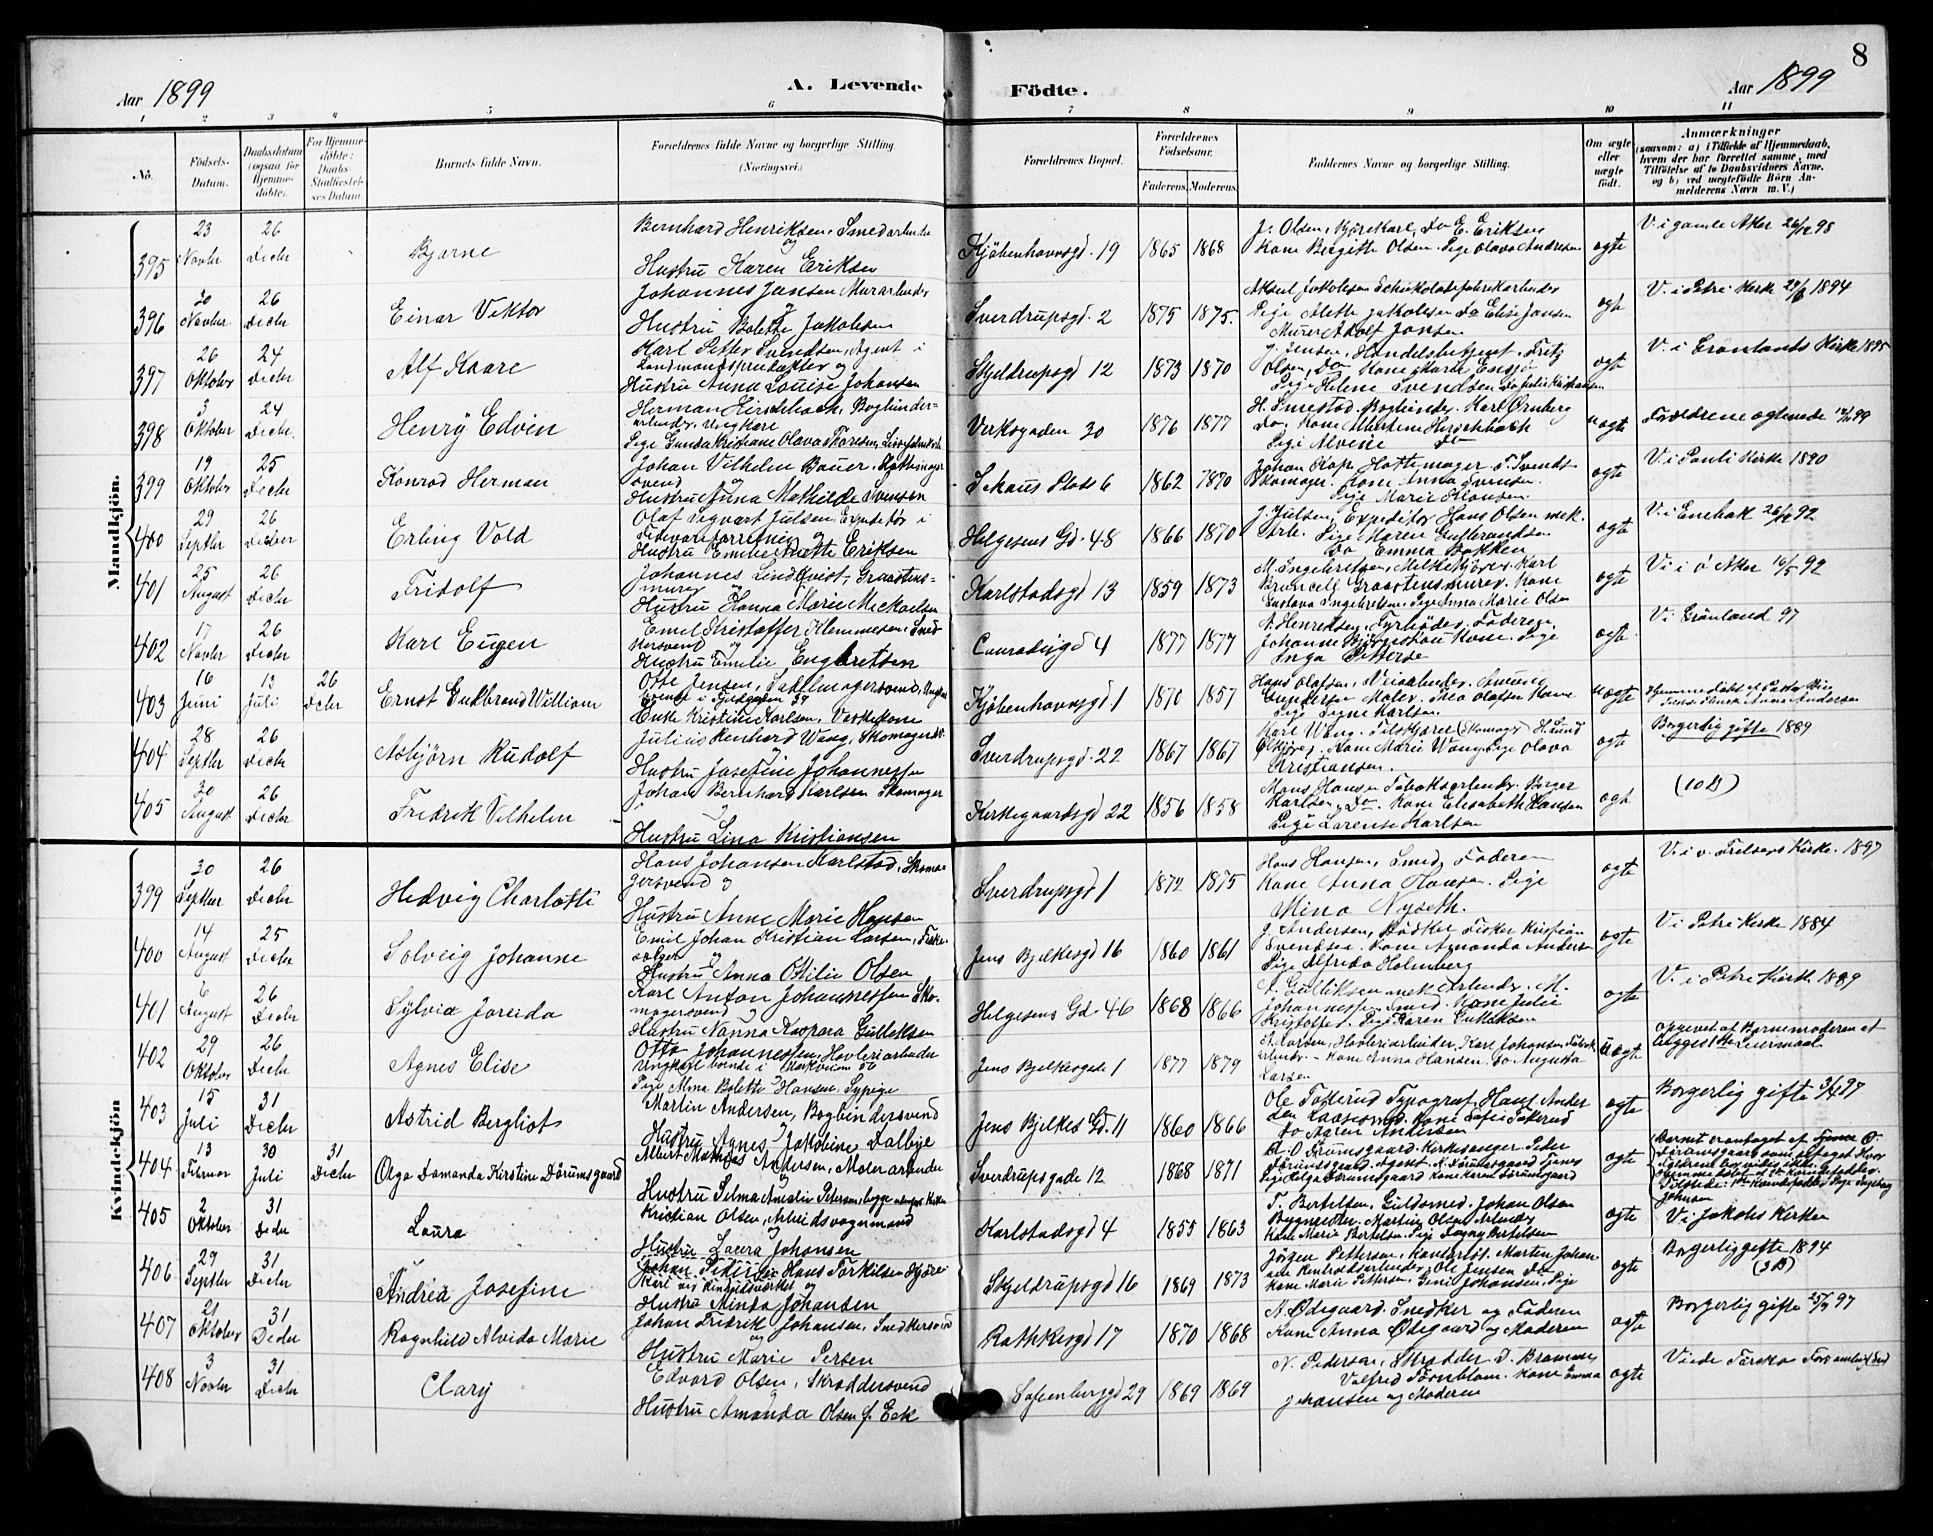 8
Aar 1899
A. Levende Födte.
Aar 1899
1 2 3 4 5 6 7 8 9 10 11
No.
Födsels-Datum.
Daabsdatum (ogsaa for Hjemmedöbte).
For Hjemmedöbte: Daabs-Stadfæstelses Datum.
Barnets fulde Navn.
Forældrenes fulde Navne og borgerlige Stilling (Næringsvei.)
Forældrenes Bopæl.
Forældrenes Födselsaar.
Faderens. Moderens.
Faddernes Navne og borgerlige Stilling.
Om ægte eller uægte født.
Anmærkninger
(saasom: a) i Tilfælde af Hjemmedaab, hvem der har forrettet samme, med Tilföielse af to Daabsvidners Navne, og b) ved uægtefödte Börn Anmelderens Navn m. V.)
Mandkjön.
395 23 Novbr 26 Decbr Bjarne
Bernhard Henriksen, Smedarbeider
og
Hustru Karen Eriksen
Kjöbenhavnsgd. 19 1865 1868
J. Olsen, Kjörekarl, Do E. Eriksen
Kone Birgitte Olsen. Pige Olava Andresen
ægte
V. i gamle Aker 26/12 98
396 30 Novbr 26 Decbr Einar Viktor
Johannes Jansen Murarbeider
og
Hustru Bolette Jakobsen
Sverdrupsgd. 2 1875 1875.
Aksel Jakobsen Schokoladefabrikarbeider
Pige Mette Jakobsen Do Elise Jansen
Murer Adolf Jansen
ægt
V. i Petri Kirke 1894
397 26 Oktober 24 Decbr Alf Kaare
Karl Petter Svendsen, Agent i
Landmandsprodukter og
Hustru Anna Louise Johansen
Skjeldrupsgd 12 1873 1870
J. Jensen, Handelsbetjent, Fritz
Olsen, Do Kone Marie
Pige Helene Svendsen
ægt
V. i Grönlands Kirke 1895
398 3 Oktober 24 Decbr. Henry Edvin
Herman Hirschbach, Bogbinder-
arbeider, Ungkarl
Pige Gunda Kristiane Olava
Verksgaden 30 1876 1877
H. Smestad. Bogbinder. Karl Ørnberg
Do. Kone Martine Hirschbach
Pige Alvine Do
uægt
Forældrene ægteviede 99
399 19 Oktober 25 Decbr Konrad Herman
Johan Vilhelm Bauer. Hattemager
svend og
Hustru Anna Mathilde Svensen
Schous Plads 6 1862 1870
Johan Rap. Hattemager. F. Svendt
Skomager. Kone Anna Svensen.
Pige Marie Hansen.
ægte
V. i Pauli Kirke 1890
400 29 Septbr 26 Decbr Erling Vold
Olaf Sigvart Julsen Expeditör i
og
Hustru Emilie Anette Eriksen
Helgesens Gd. 48 1866 1870
J. Julsen, Expeditör Hans Olsen mek.
Arb. Pige Maren Gulbrandsen
Do Emma Bakken
ægte
V. i Enebak 26/12 92
401 25 August 26 Decbr Fridolf
Johannes Lindqvist, Graastens-
murer
Hustru Hanna Marie Mickaelsen
Karlstadsgd 13 1859 1873
M. Ingebretsen, Melkekjörer. Karl
Graastensmurer. Kone
Gustava Ingebretsen. Pige Anna Marie Olsen
ægte
V. i ö Aker 92
402 17 Novbr 26 Decbr Karl Eugen
Emil Kristoffer Klemmesen. Sned-
kersvend og
Hustru Emilie Engbretsen
Conradisgd 4 1877 1877
A. Henriksen, Fyrböder. Faderen.
Johanne Kone. Pige
Inga Pettersen
ægte.
V. i Grönland 97
403 16 Juni 13 Juli 26 Decbr Ernst Gulbrand William
Otto Jensen, Sadelmagersvend, Ungkarl
Enke Kristine Karlsen, Vaskekone
Kjöbenhavnsgd. 1 1870 1857
Hans Olafsen, Veiarbeider. Amund
Gundersen Maler. Thea Olafsen Kone
Pige Signe Karlsen
uægte
404 28 Septbr 26 Decbr Asbjörn Rudolf
Julius Renhard Wang, Skomager
og
Hustru Josefine Johannessen
Sverdrupsgd. 22 1867 1867
Karl Wang. H. Lund
Kone Marie Wang. Pige Olava
Kristiansen.
ægt
Borgerlig gifte 1889
405 30 August 26 Decbr Fredrik Vilhelm
Johan Bernhard Karlsen Skomager
og
Hustru Lina Kristiansen
Kirkegaardsgd 22 1856 1858
Mons Hansen Tobaksarbeider. Birger
Karlsen, Do Kone Elisabeth Hansen
Pige Larense Karlsen
ægt
(10 D)
Kvindekjön
399 30 Septbr 26 Decbr Hedvig Charlotte
Hans Johansen Karlstad, Skoma-
gersvend og
Hustru Anne Marie Hansen
Sverdrupsgd 1 1872 1875
Hans Hansen, Smed, Faderen
Kone Anna Hansen. Pige
Mina Nyseth.
ægte
V. i v. Frelsers Kirke. 1897
400 14 August 25 Decbr Solveig Johanne
Emil Johan Kristian Larsen, Fiske-
sælger og
Hustru Anna Otilie Olsen
Jens Bjelkesgd 16 1860 1861
J. Andersen, Bödker Fisker Kristian
Svendsen. Kone Amanda Andersen
Pige Alfrida Holmberg
ægte
V. i Petri Kirke 1884
401 6 August 26 Decbr Sylvia Joreida
Karl Anton Johannessen Sko-
magersvend og
Hustru Nanna Kaspara Gulliksen
Helgesens Gd. 46 1868 1866
A. Gulliksen mek Arbeider, M.
Johannessen Smed. Kone Julie
Kristoffe. Pige Karen Gulliksen
ægte
V. i Petri Kirke 1889
402 29 Oktober 26 Decbr Agnes Elise
Otto Johannessen, Hövleriarbeider
Ungkarl boende i Markveien 56
Pige Alma Bolette Hansen, Sypige
Jens Bjelkesgade 1 1877 1879
A. Larsen, Hövleriarbeider, Karl Johansen Fabrik
arbeider. Kone Anna Hansen. Do Augusta
Larsen
Uægte
Opgivet af Barnemoderen at
begges 1ste Leiermaal
403 15 Juli 31 Decbr Astrid Bergliot
Martin Andersen, Bogbindersvend
og
Hustru Agnes Jakobine Dalbye
Jens Bjelkes Gd. 11 1860 1866
Ole Fosterud Typograf, Hans Ander
Kone Sofie Fosterud
Do Karen Andersen
ægte
Borgerlig gifte 97
404 13 Februar 30 Juli 31 Decbr Olga Damanda Kirstine Dörumsgaard
Albert Mathias Andersen, Malerarbeider
og
Hustru Selma Amalie Petersen, begge
Sverdrupsgade 12 1868 1871
Kirkesanger. Peder
Dörumsgaard Agent. A. Dörumsgaard
Pige Helga Dörumsgaard Kone Karen Dörumsgaard
ægte
Barnet er antaget af
405 2 Oktober 31 Decbr Laura
Kristian Olsen, Arbeidsvognmand
Hustru Laura Johansen
Karlstadsgd 4 1855 1863
T. Bertelsen, Guldsmed. Johan Olsen
Bygmester. Martin Olsen Arbeider
Kone Marie Bertelsen. Pige Dagny Bertelsen
ægte
V. i Jakobs Kirken
406 29 Septbr 31 Decbr Andrea Josefine
Hans Torkildsen Kjöre-
karl
og
Hustru Minda Johansen
Skjeldrupsgd 16 1869 1873
Jörgen Pettersen, Martin Johan
sen Renholdsarbeider, Ole Jensen Do
Kone Marie Pettersen, Gina Johansen, Pige
ægte
Borgerlig gifte 1894
(3 B)
407 21 Oktober 31 Decbr Ragnhild Alvida Marie
Johan Fredrik Johansen, Snedkersvend
og
Hustru Marie Persen
Rathkesgd 17 1870 1868
N. Ödegaard. Snedker og Faderen
Kone Anna Ödegaard og Moderen
ægte
Borgerlig gifte 97
408 3 Novbr 31 Decbr Clary
Edvard Olsen, Skræddersvend
og
Hustru Amanda Olsen f. Eek
Sofienberggd 29 1869 1869
N. Pedersen, Skrædder D.
Valfrid Törnblom. Kone Emma
Johansen og Moderen
ægte